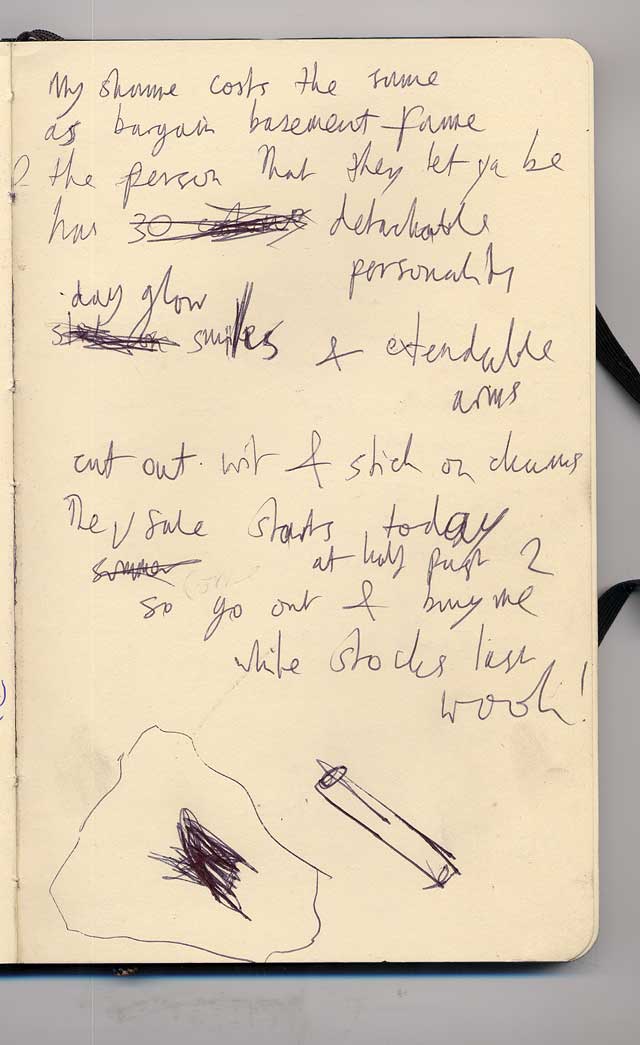 My shame costs the same
as bargain basement fame
& the person that they let ya be
has 30 detachable
personality
day glow
smiles & extendable
arms
cut out wit & stick on charms
The sale starts today
summer at half past 2
so go out & buy me
while stocks last
wooh!